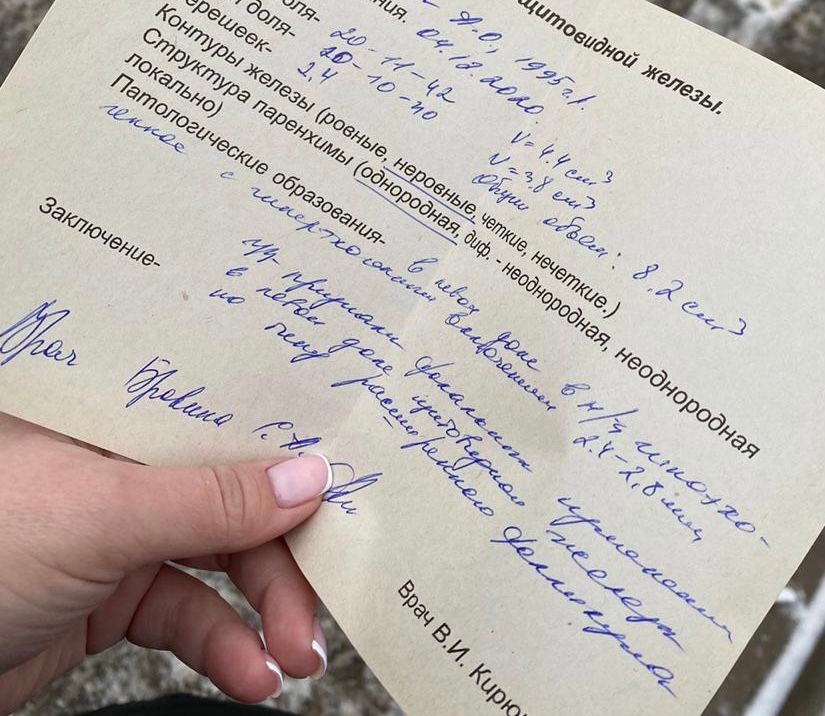 щитовидной железы.
А.О, 1995г.р.
ния. 04.12.2020.
доля- 20-11-42 V= 4.4 см3
доля- 20-10-40 V= 3.8 см3
ерешеек- 2,4 Общий объем: 8.2 см3
Контуры железы (ровные, неровные, четкие, нечеткие.)
Структура паренхимы (однородная, диф. - неоднородная, неоднородная
локально)
Патологические образования- в левой доле в н/з гипоэхо-
генное с гиперэхогенными включениями 2.4-2,8 мм,
Заключение- УЗ-признаки фокальных изменений
в левой доле щитовидной железы
по типу расширенного фолликула
Врач
Врач В.И. Кирю